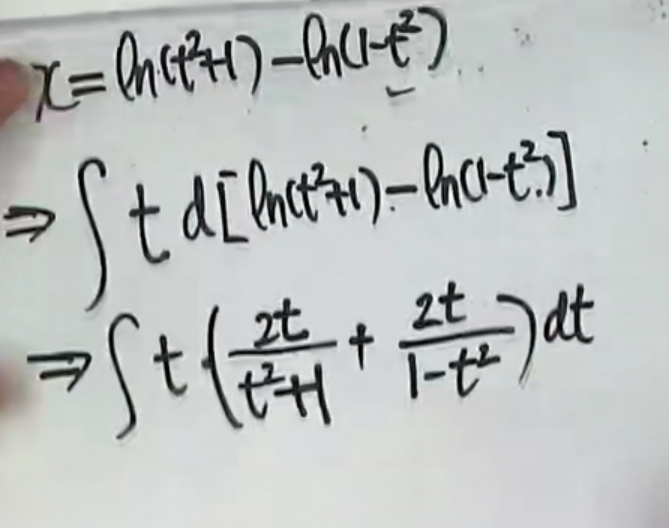 x = ln(t²+1) - ln(1-t²)
⇒ ∫ t d[ln(t²+1) - ln(1-t²)]
⇒ ∫ t (2t/(t²+1) + 2t/(1-t²)) dt